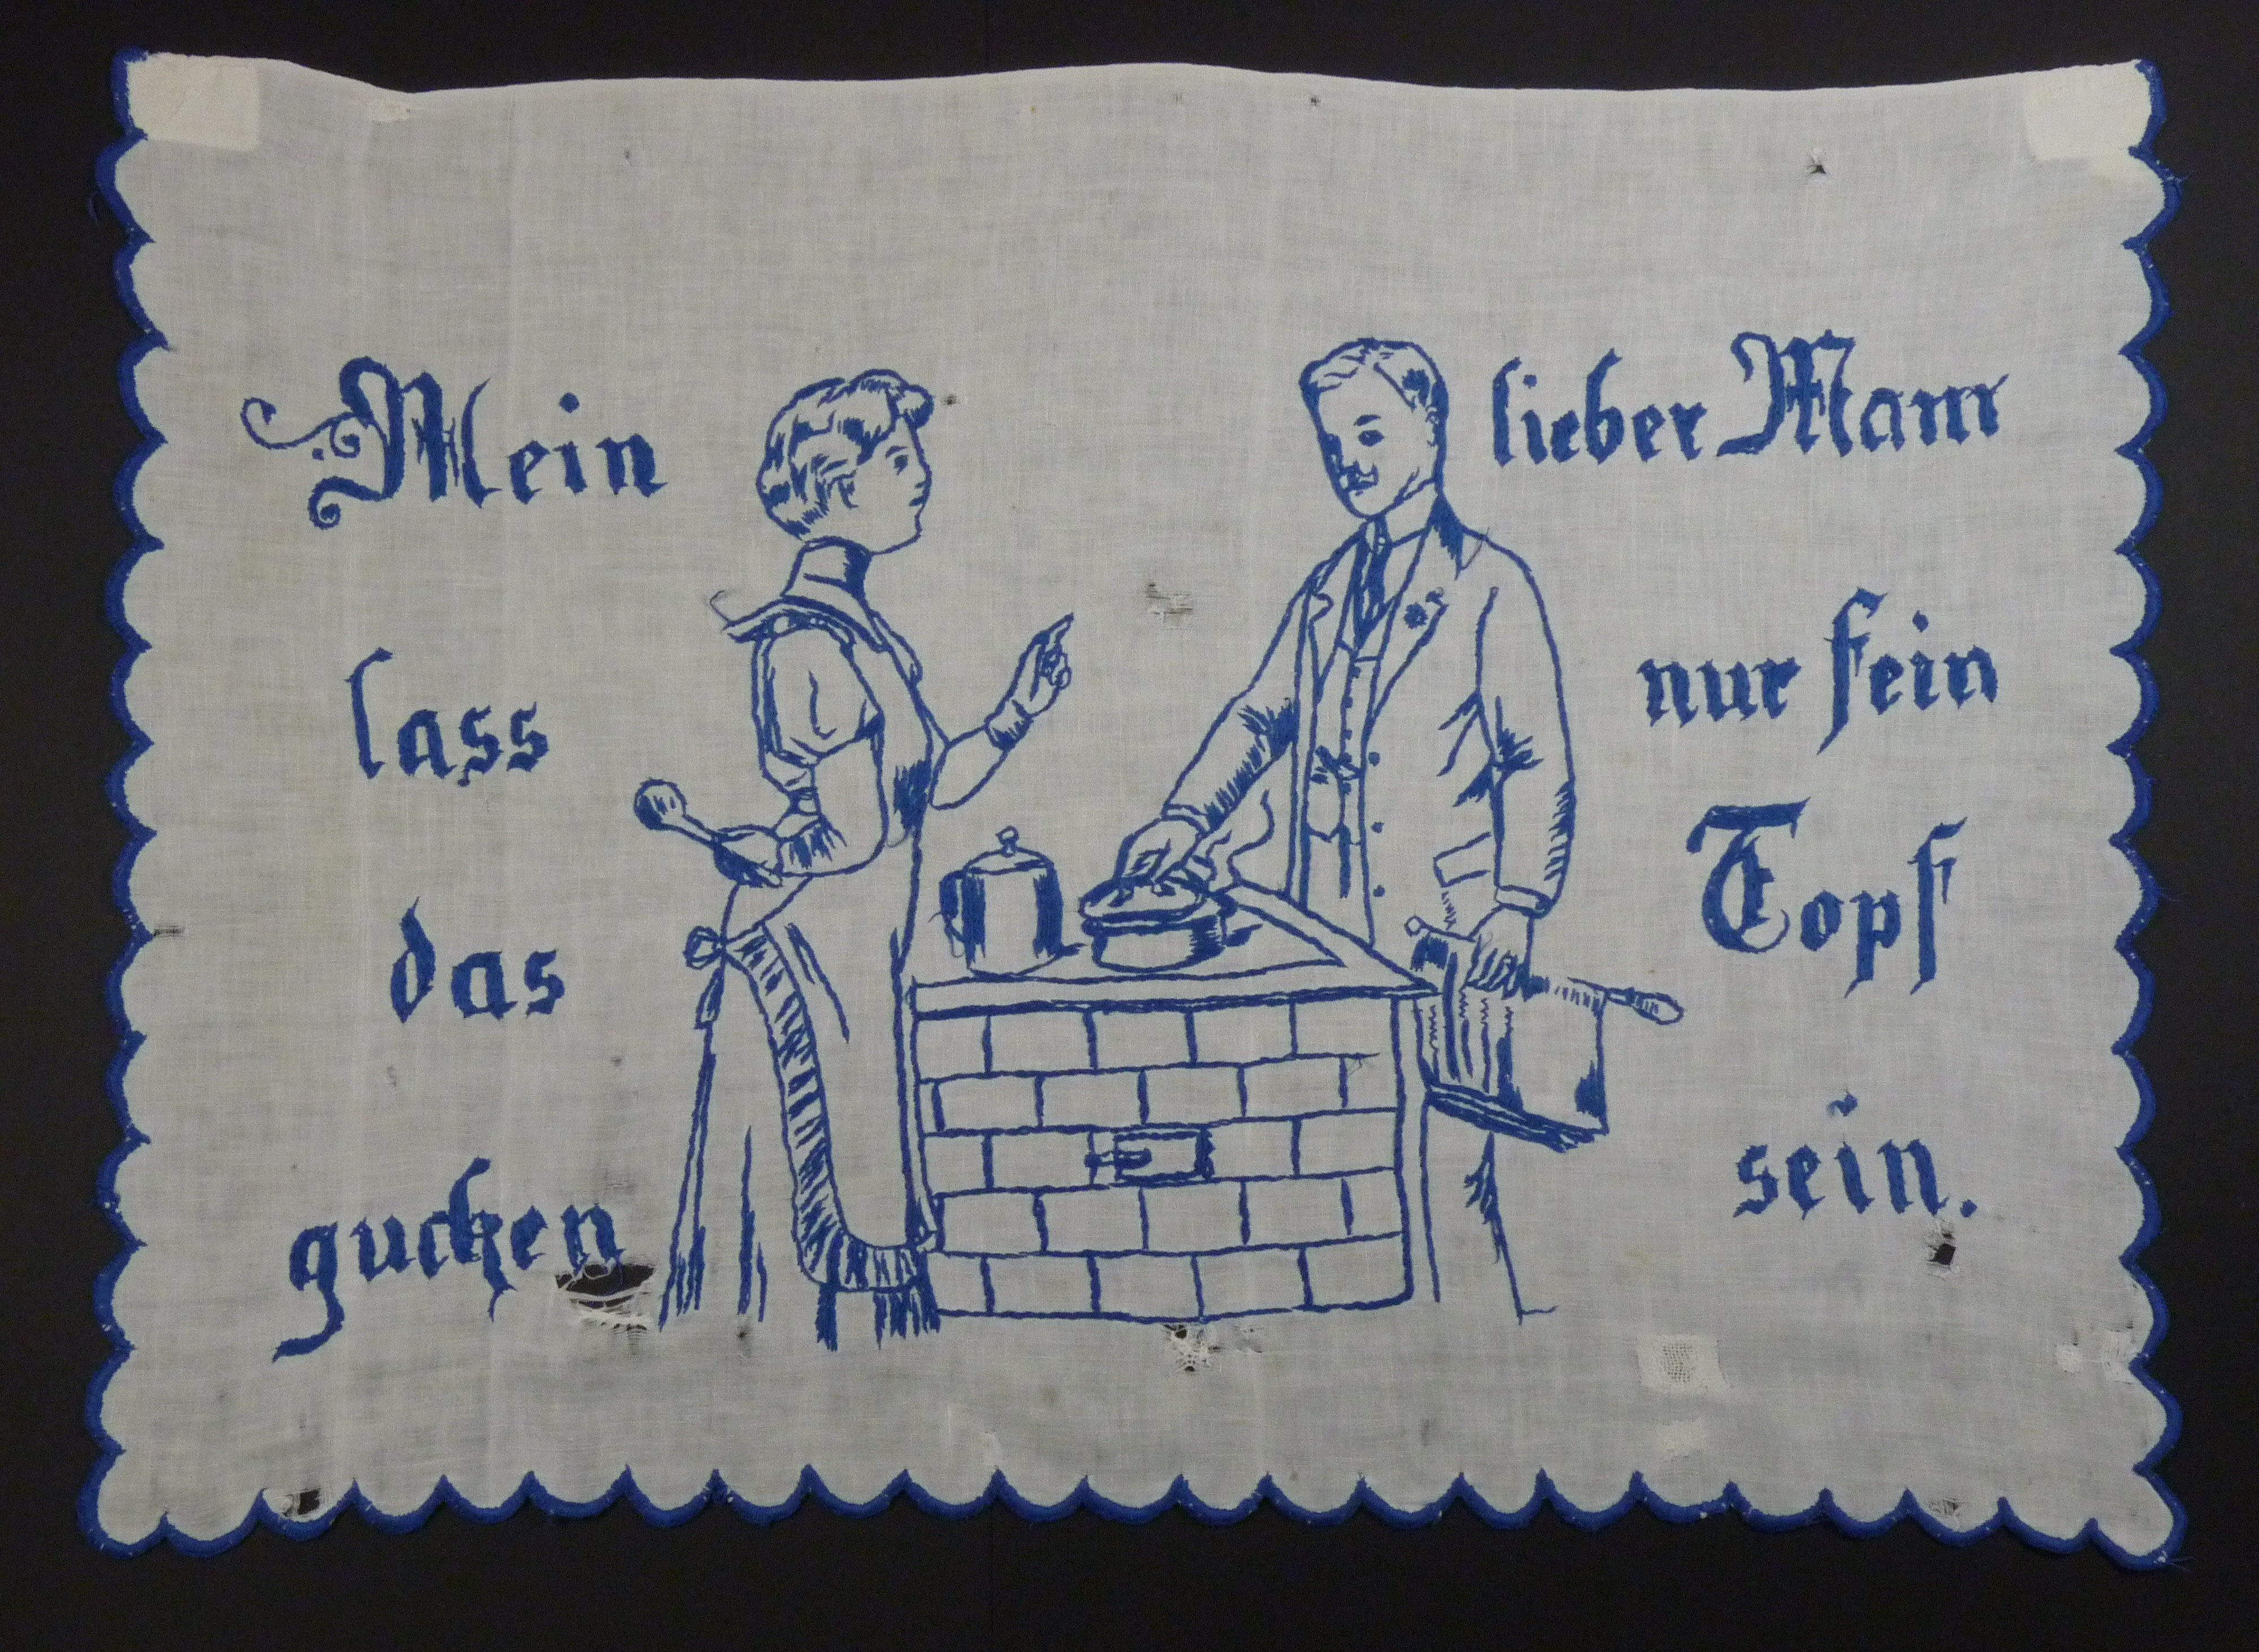 Mein lieber Mann
lass nur fein
das Topf
gucken sein.